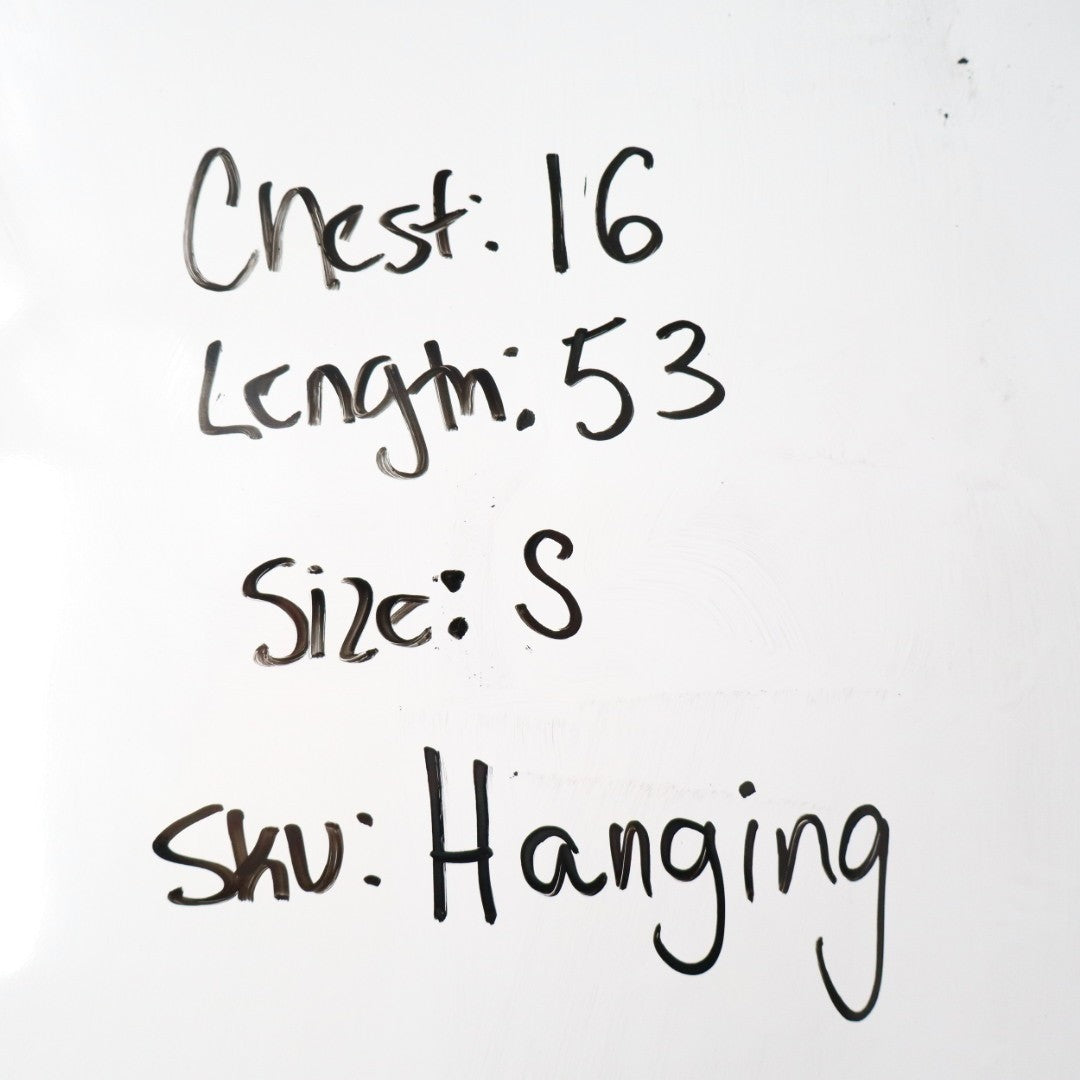 Chest: 16
Length: 53
Size: S
Sku: Hanging